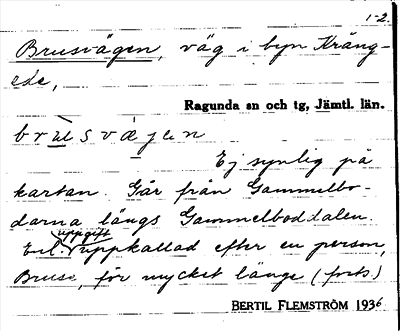 1-2
Brusvägen, väg i byn Kräng-
ede,
Ragunda sn och tg, Jämtl. län.
brusvajen
Ej synlig på
kartan. Går från Gammelbo-
darna längs Gammelboddalen.
Enl. uppgift uppkallad efter en person,
Bruse, för mycket länge (forts.)
BERTIL FLEMSTRÖM 1936